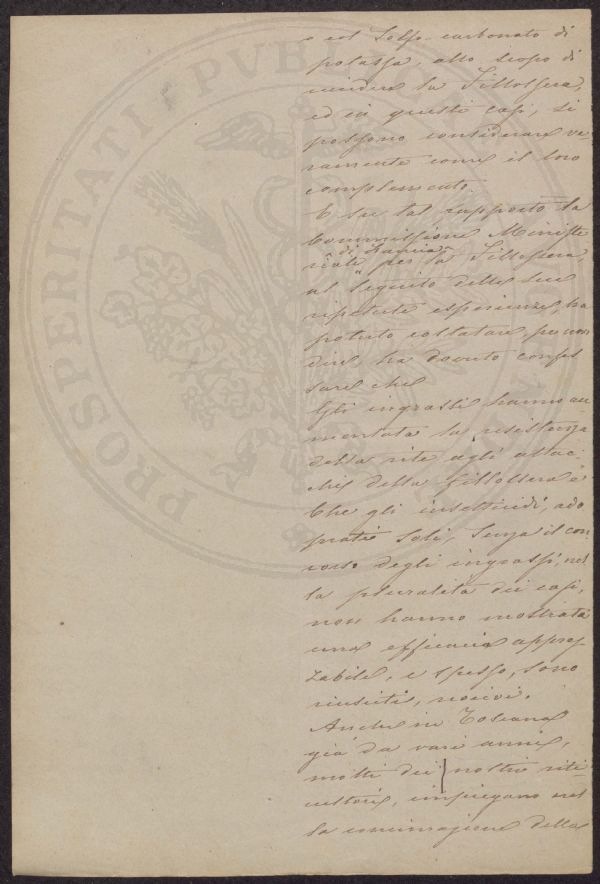 e col Solfo-carbonato di
potassa, allo scopo di
uccidere la Fillossera,
ed in questi casi, si
possono considerare ve-
ramente come il loro
complemento.
E su tal rapporto la
Commissione Ministe
riale di Francia per la Fillossera,
al seguito delle sue
ripetute esperienze, ha
potuto costatare, per non
dire, ha dovuto confes
sare che
Gli ingrassi hanno au
mentata la resistenza
della vite agli attac-
chi della Fillossera e
Che gli insetticidi, ado
prati soli, senza il con
corso degli ingrassi, nel
la pluralità dei casi,
non hanno mostrata
una efficacia apprez
zabile, e spesso, sono
riusciti, nocivi.
Anche in Toscana
già da vari anni,
molti dei nostri viti
cultori, impiegano nel
la concimazione delle
PROSPERITATI PUBLICAE